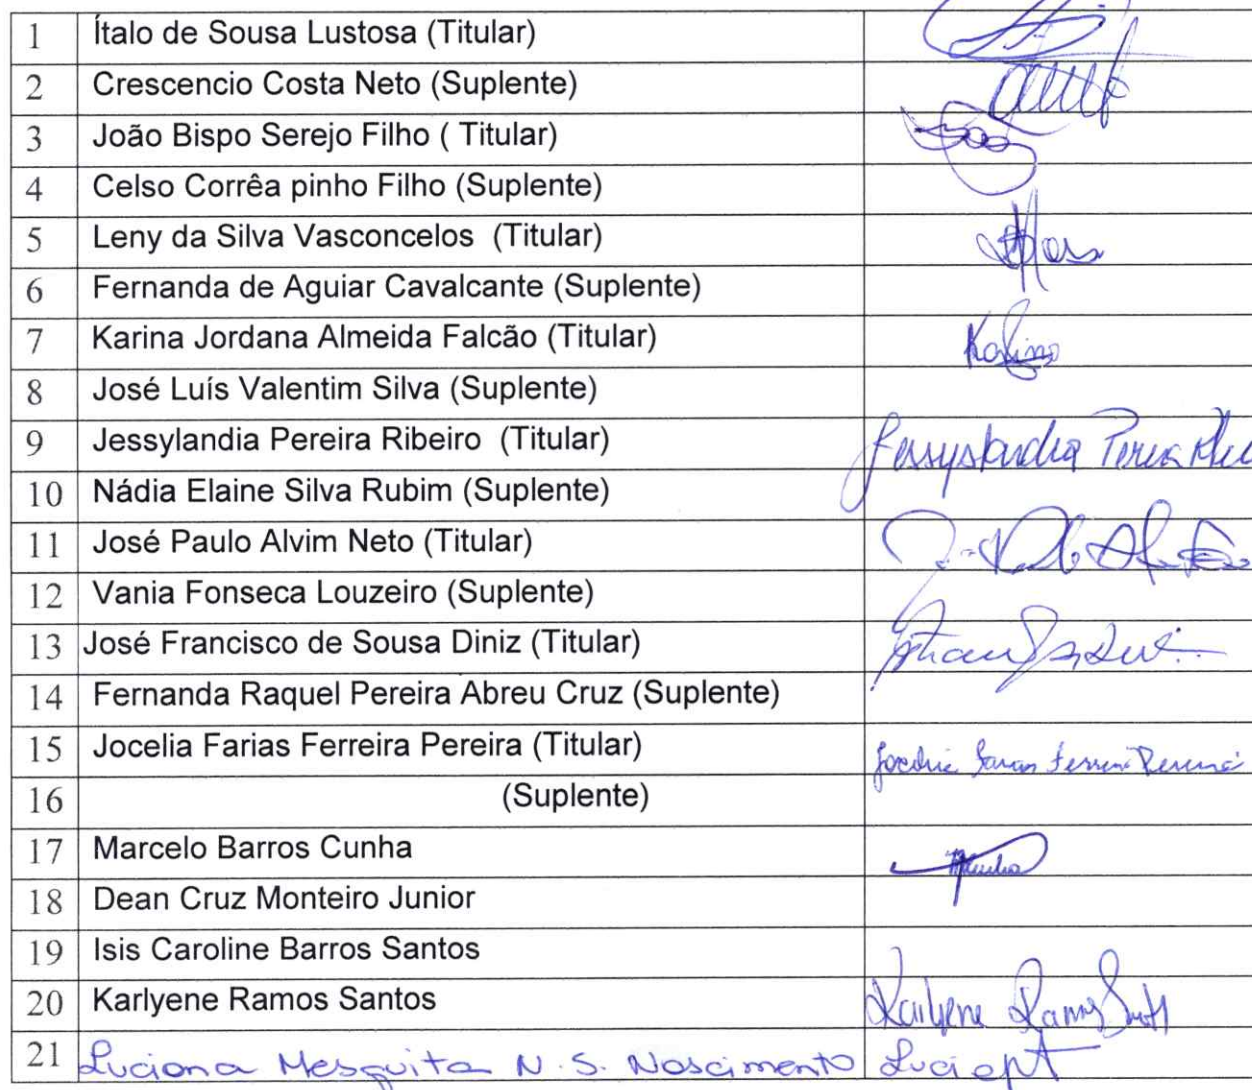 1 Ítalo de Sousa Lustosa (Titular)
2 Crescencio Costa Neto (Suplente)
3 João Bispo Serejo Filho ( Titular)
4 Celso Corrêa pinho Filho (Suplente)
5 Leny da Silva Vasconcelos (Titular)
6 Fernanda de Aguiar Cavalcante (Suplente)
7 Karina Jordana Almeida Falcão (Titular) Karina
8 José Luís Valentim Silva (Suplente)
9 Jessylandia Pereira Ribeiro (Titular) Jessylandia Pereira
10 Nádia Elaine Silva Rubim (Suplente)
11 José Paulo Alvim Neto (Titular)
12 Vania Fonseca Louzeiro (Suplente)
13 José Francisco de Sousa Diniz (Titular)
14 Fernanda Raquel Pereira Abreu Cruz (Suplente)
15 Jocelia Farias Ferreira Pereira (Titular) Jocelia Farias Ferreira Pereira
16 (Suplente)
17 Marcelo Barros Cunha
18 Dean Cruz Monteiro Junior
19 Isis Caroline Barros Santos
20 Karlyene Ramos Santos Karlyene Ramos
21 Luciana Mesquita N. S. Nascimento